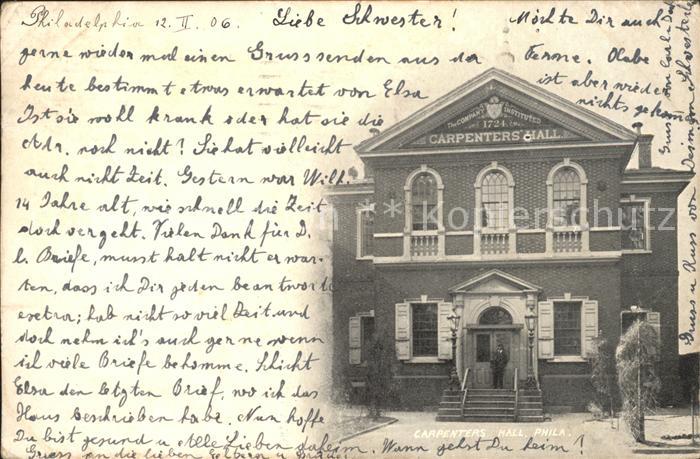 Philadelphia 12. II. 06.
Liebe Schwester! Möchte Dir auch
gerne wieder mal einen Gruss senden aus der Ferne. Habe
heute bestimmt etwas erwartet von Elsa
ist aber wieder
nichts gekomm
Ist sie wohl krank oder hat sie die
Adr. noch nicht! Sie hat vielleicht
auch nicht Zeit. Gestern war Wilh.
14 Jahre alt, wie schnell die Zeit
doch vergeht. Vielen Dank für D.
l. Briefe, musst halt nicht erwar-
ten, dass ich Dir jeden beantworte
extra; hab nicht so viel Zeit und
doch nehm ich's auch gerne wenn
ich viele Briefe bekomme. Schickt
Elsa den letzten Brief, wo ich das
Haus beschrieben habe. Nun hoffe
Du bist gesund u. Alle Lieben daheim. Wann gehst Du heim!
Gruss an die lieben Eltern u.
Gruss u Kuss von Deiner Schwester
Gruss von Carl
THE COMPANY INSTITUTED
1724
CARPENTERS' HALL
CARPENTERS HALL, PHILA.
Kopierschutz